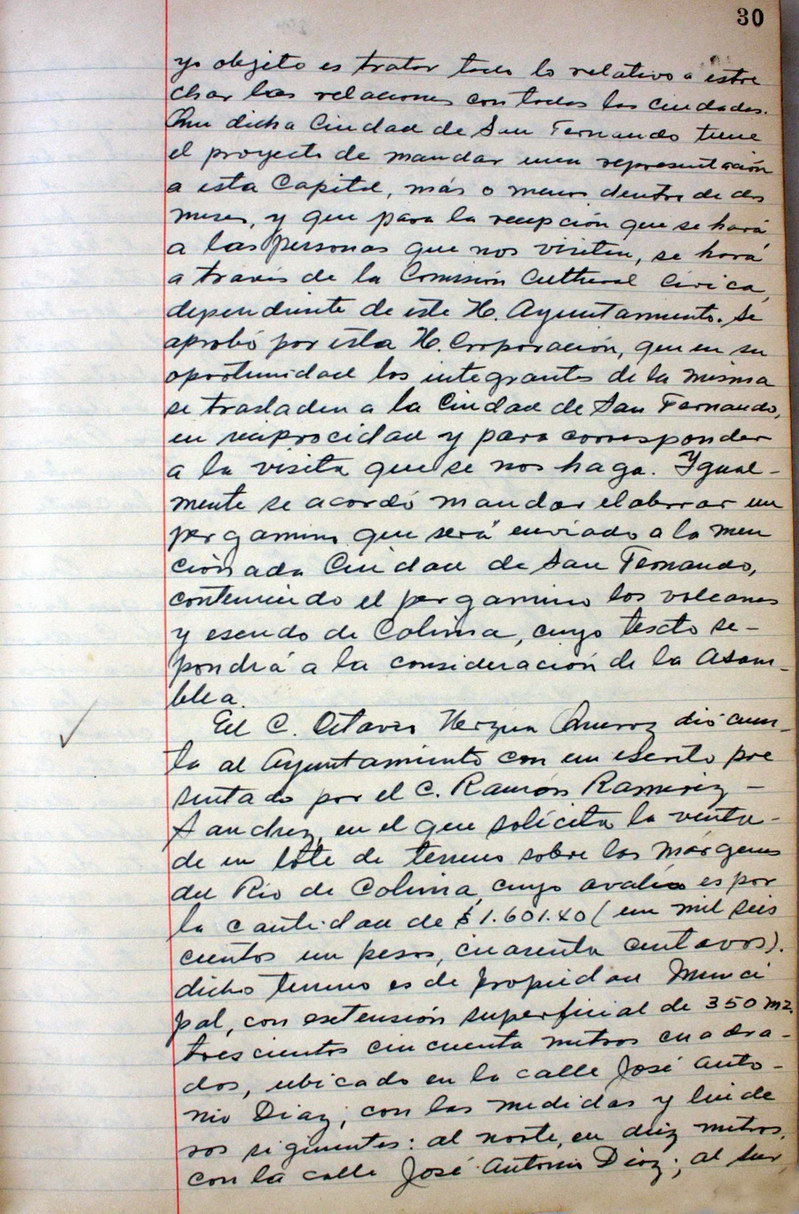 30
yo objeto es tratar todo lo relativo a estre
char las relaciones con todas las ciudades.
Que dicha Ciudad de San Fernando tiene
el proyecto de mandar una representación
a esta Capital, más o menos dentro de dos
meses, y que para la recepción que se hará
a las personas que nos visiten, se hará
a través de la Comisión Cultural Cívica,
dependiente de este H. Ayuntamiento. Se
aprobó por esta H. Corporación, que en su
oportunidad los integrantes de la misma
se trasladen a la Ciudad de San Fernando,
en reciprocidad y para corresponder
a la visita que se nos haga. Ygual-
mente se acordó mandar elaborar un
pergamino que será enviado a la men
cionada Ciudad de San Fernando,
conteniendo el pergamino los volcanes
y escudo de Colima, cuyo texto se-
pondrá a la consideración de la Asam-
blea.
El C. Octavio dió cuen-
ta al Ayuntamiento con un escrito pre
sentado por el C. Ramón Ramírez-
Sanchez, en el que solicita la venta-
de un lote de terreno sobre las márgenes
del Rio de Colima, cuyo avalúo es por
la cantidad de $1.601.40 (un mil seis
cientos un pesos, cuarenta centavos).
dicho terreno es de propiedad Munici
pal, con extensión superficial de 350 m2.
trescientos cincuenta metros cuadra-
dos, ubicado en la calle José Anto-
nio Diaz, con las medidas y linde
ros siguientes: al norte, en diez metros,
con la calle José Antonio Diaz; al sur,